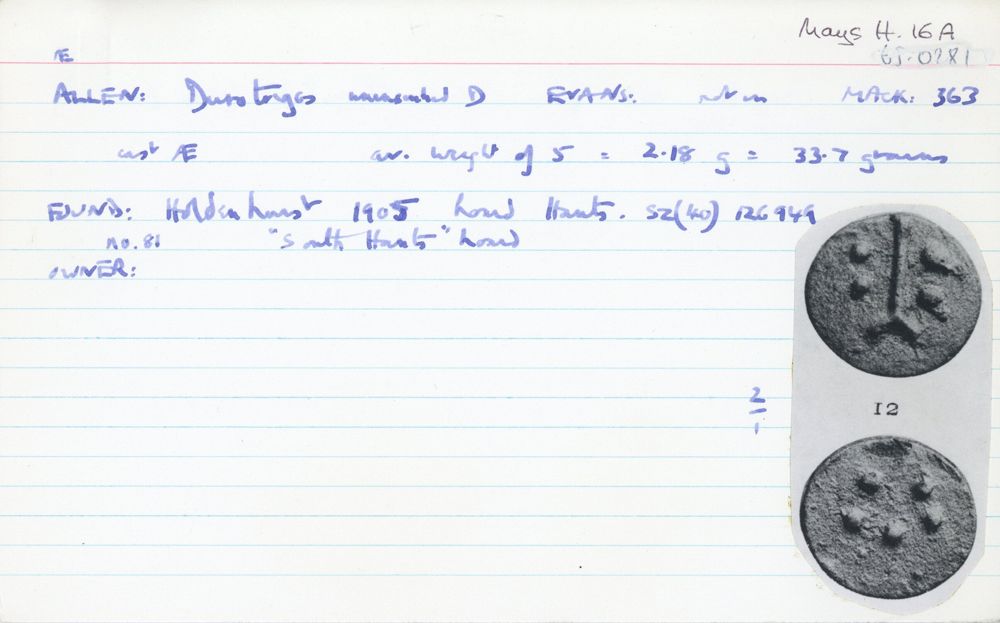 Mays H. 16A
65.0281
Æ
ALLEN: Durotriges uninscribed D EVANS: not in MACK: 363
cast Æ av. weight of 5 = 2.18 g = 33.7 grains
FOUND: Holdenhurst 1905 hoard Hants. SZ(40) 126949
no. 81 "South Hants" hoard
OWNER:
2
1
12